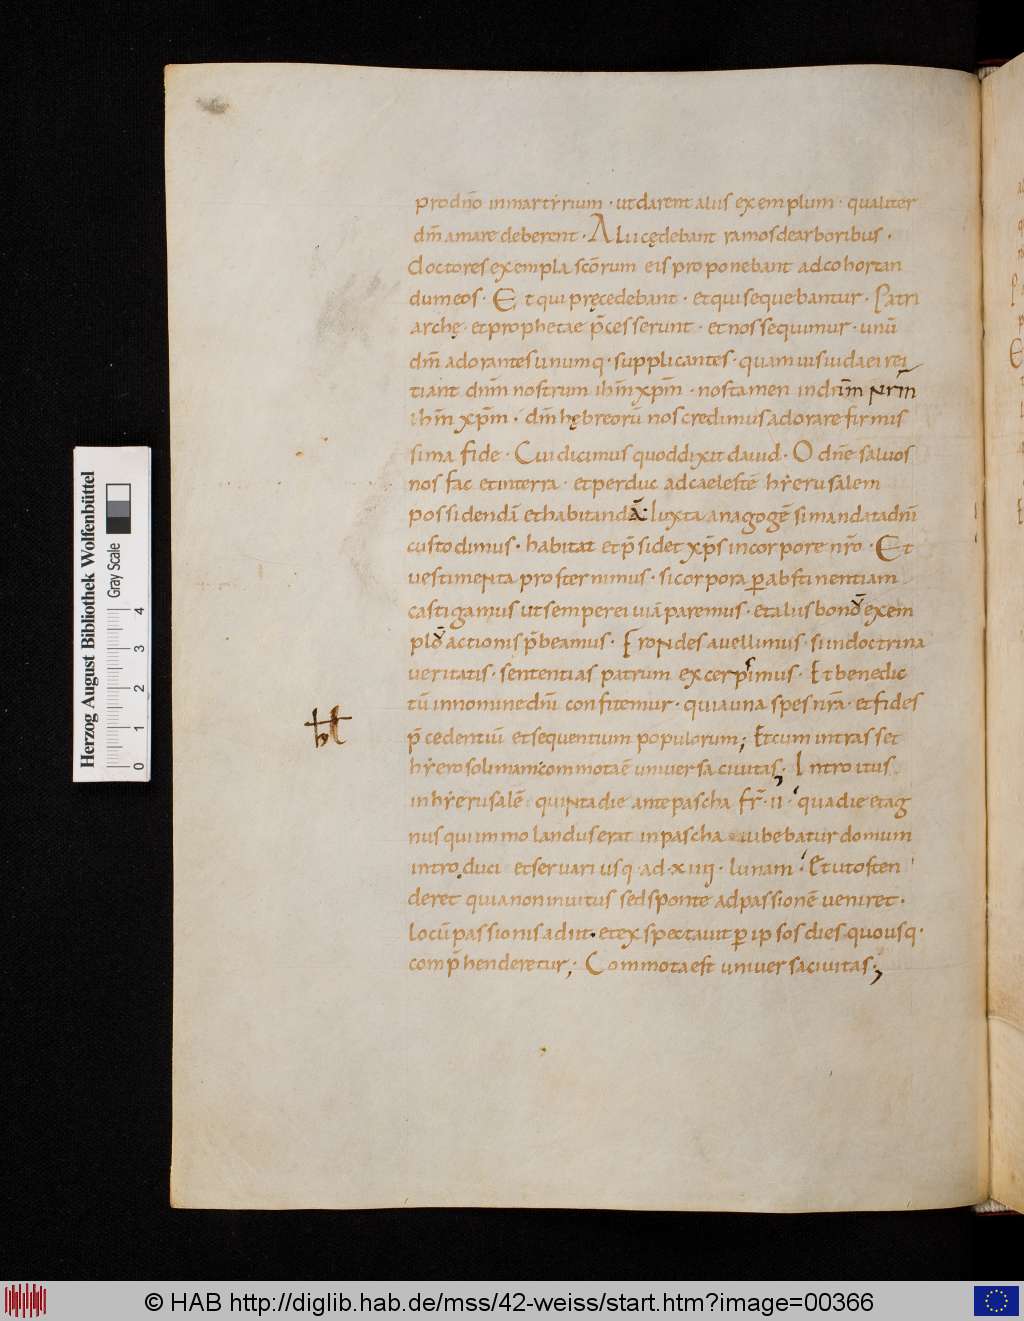 pro dño in martyrium · ut darent aliis exemplum · qualiter
dm̄ amare deberent · Alii cędebant ramos de arboribus ·
doctores exempla scōrum eis proponebant ad cohortan
dum eos · Et qui pręcedebant · et qui sequebantur · Patri
archę · et prophetae p̄cesserunt · et nos sequimur · unū
dm̄ adorantes unumq · supplicantes · quamuis iudaei rei
tiant dnm̄ nostrum ihm̄ xpm̄ · nos tamen in dnm̄ nrm̄
ihm̄ xpm̄ · dm̄ hębreorū nos credimus adorare firmis
sima fide · Cui dicimus quod dixit dauid · O dñe saluos
nos fac et in terra · et perduc ad caelestē hyerusalem
possidendā et habitandā: Iuxta anagogē si mandata dn̄i
custodimus · habitat et p̄sidet xp̄s in corpore nr̄o · Et
uestimenta prosternimus · si corpora p abstinentiam
castigamus ut semper ei uiā paremus · et aliis bonę exem
plę actionis p̄beamus · Frondes auellimus · si in doctrina
ueritatis · sententias patrum excerpimus · Et benedic
tū in nomine dn̄i confitemur · quia una spes nr̄a · et fides
p̄cedentiū et sequentium populorum; Et cum intrasset
hyerosolimam commota ē uniuersa ciuitas; Introitus
in hyerusalē quinta die ante pascha fr̄ · ii · qua die et ag
nus qui immolandus erat in pascha iubebatur domum
introduci et seruari usq · ad · xiiii · lunam · Et ut osten
deret quia non inuitus sed sponte ad passionē ueniret ·
locū passionis adiit · et exspectauit p ipsos dies quousq ·
comp̄henderetur; Commota est uniuersa ciuitas;
Herzog August Bibliothek Wolfenbüttel
Gray Scale
0 1 2 3 4
© HAB http://diglib.hab.de/mss/42-weiss/start.htm?image=00366